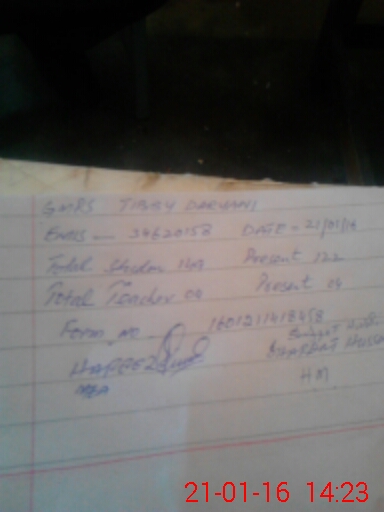 GMPS TIBBY DARYANI
Emis — 34620158 DATE = 21/01/16
Total Studen Present 122
Total Teacher 04 Present 04
Form no 1601211418458
HAFEEZ
HM
21-01-16 14:23